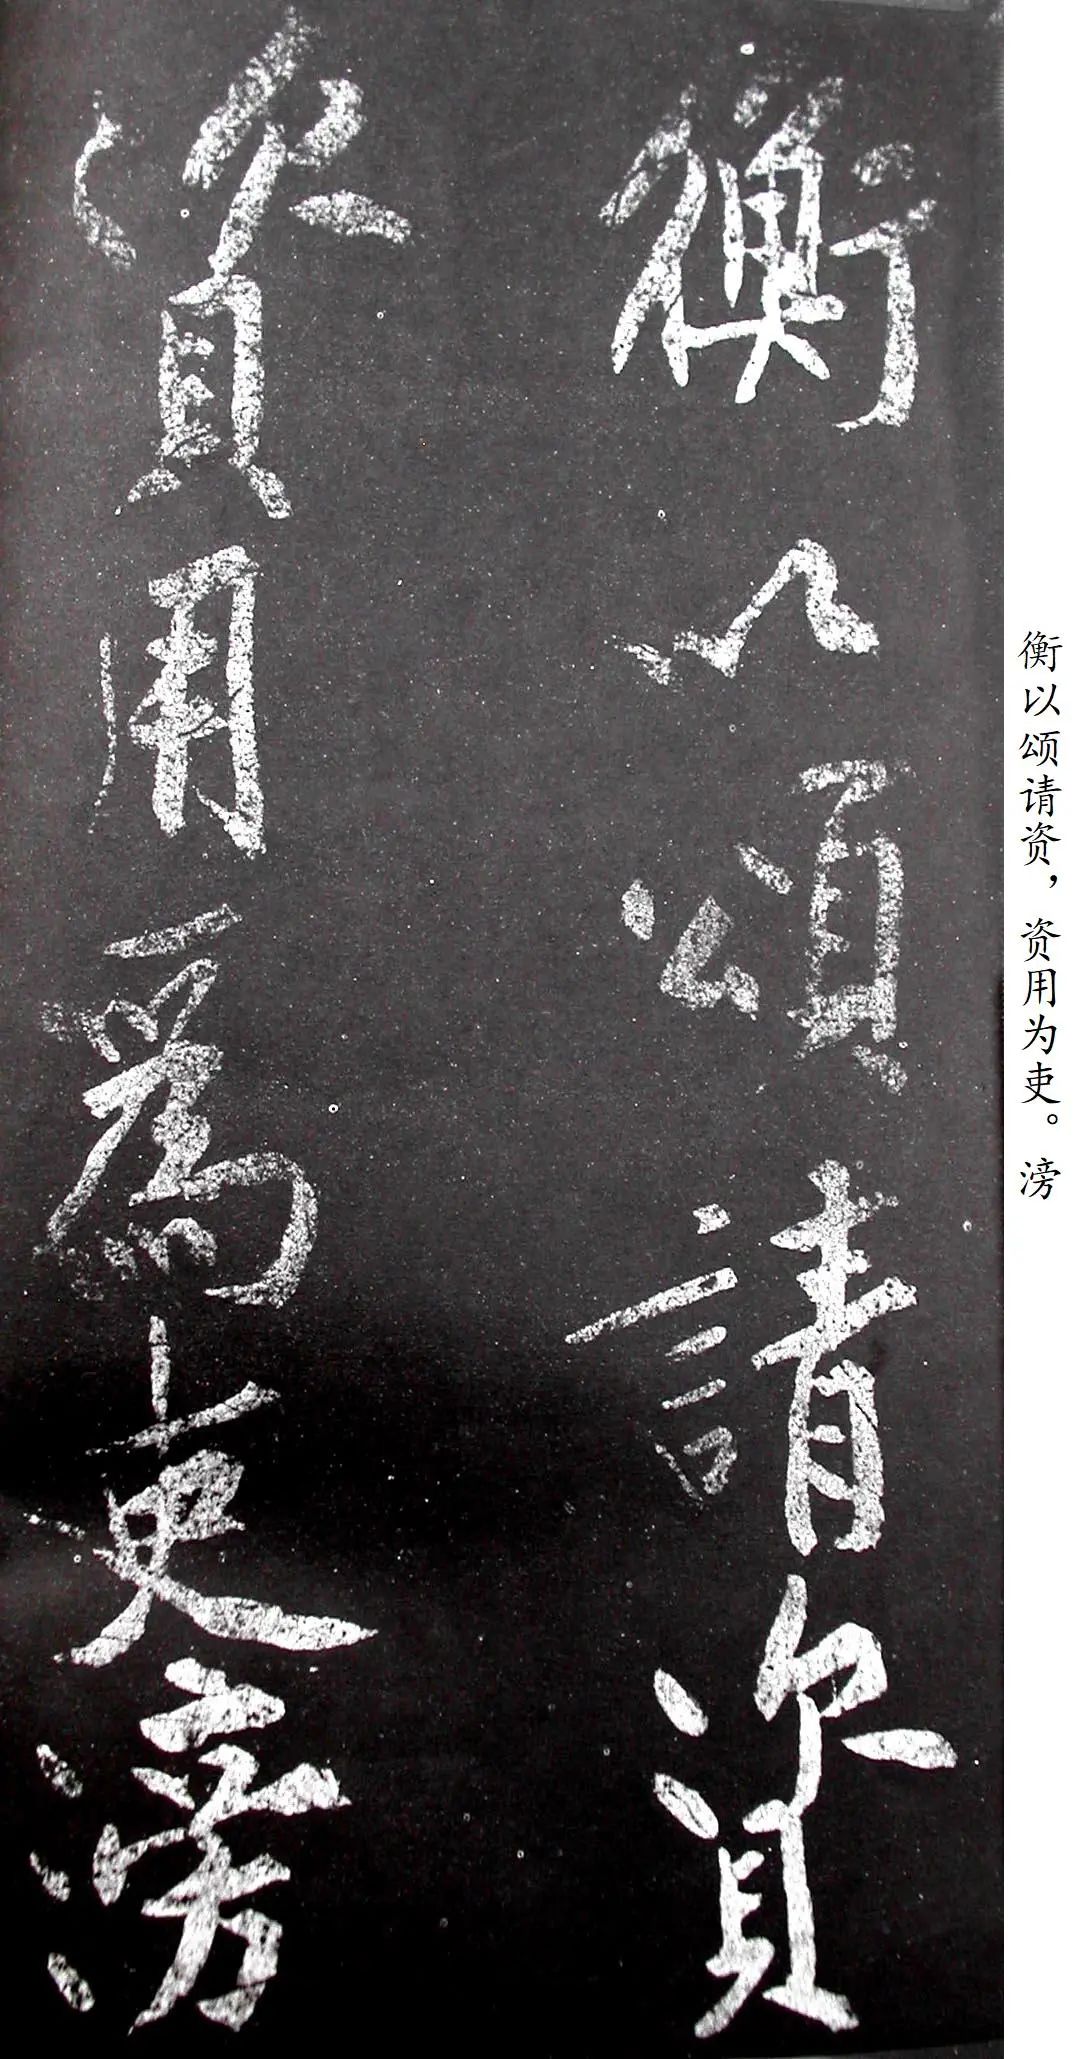 衡以頌請資
資用為吏滂
衡以颂请资，资用为吏。滂